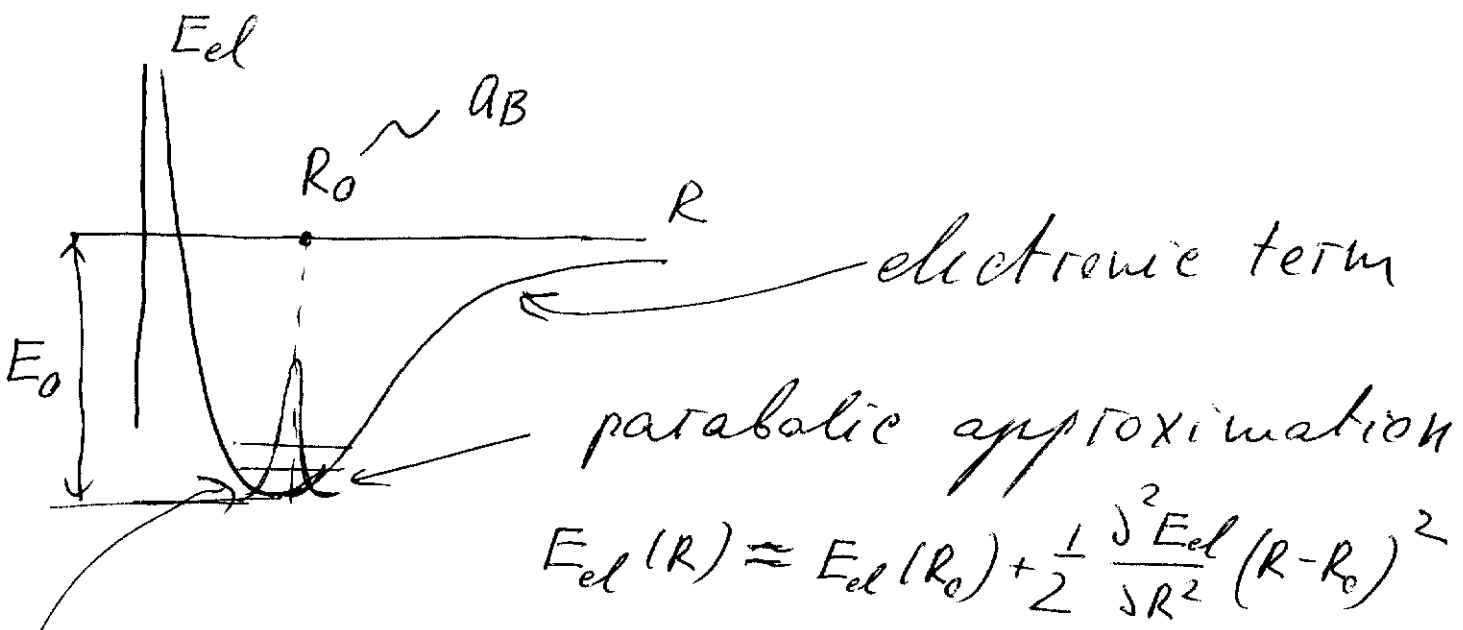 E_el
R_0 ~ a_B
R
electronic term
E_0
parabolic approximation
E_el (R) ≈ E_el (R_0) + 1/2 ∂²E_el/∂R² (R-R_0)²